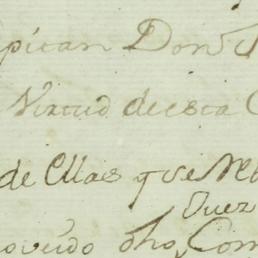 pitan Don
Virtud de esta
de ellas que
Juez
oveido dho, Com